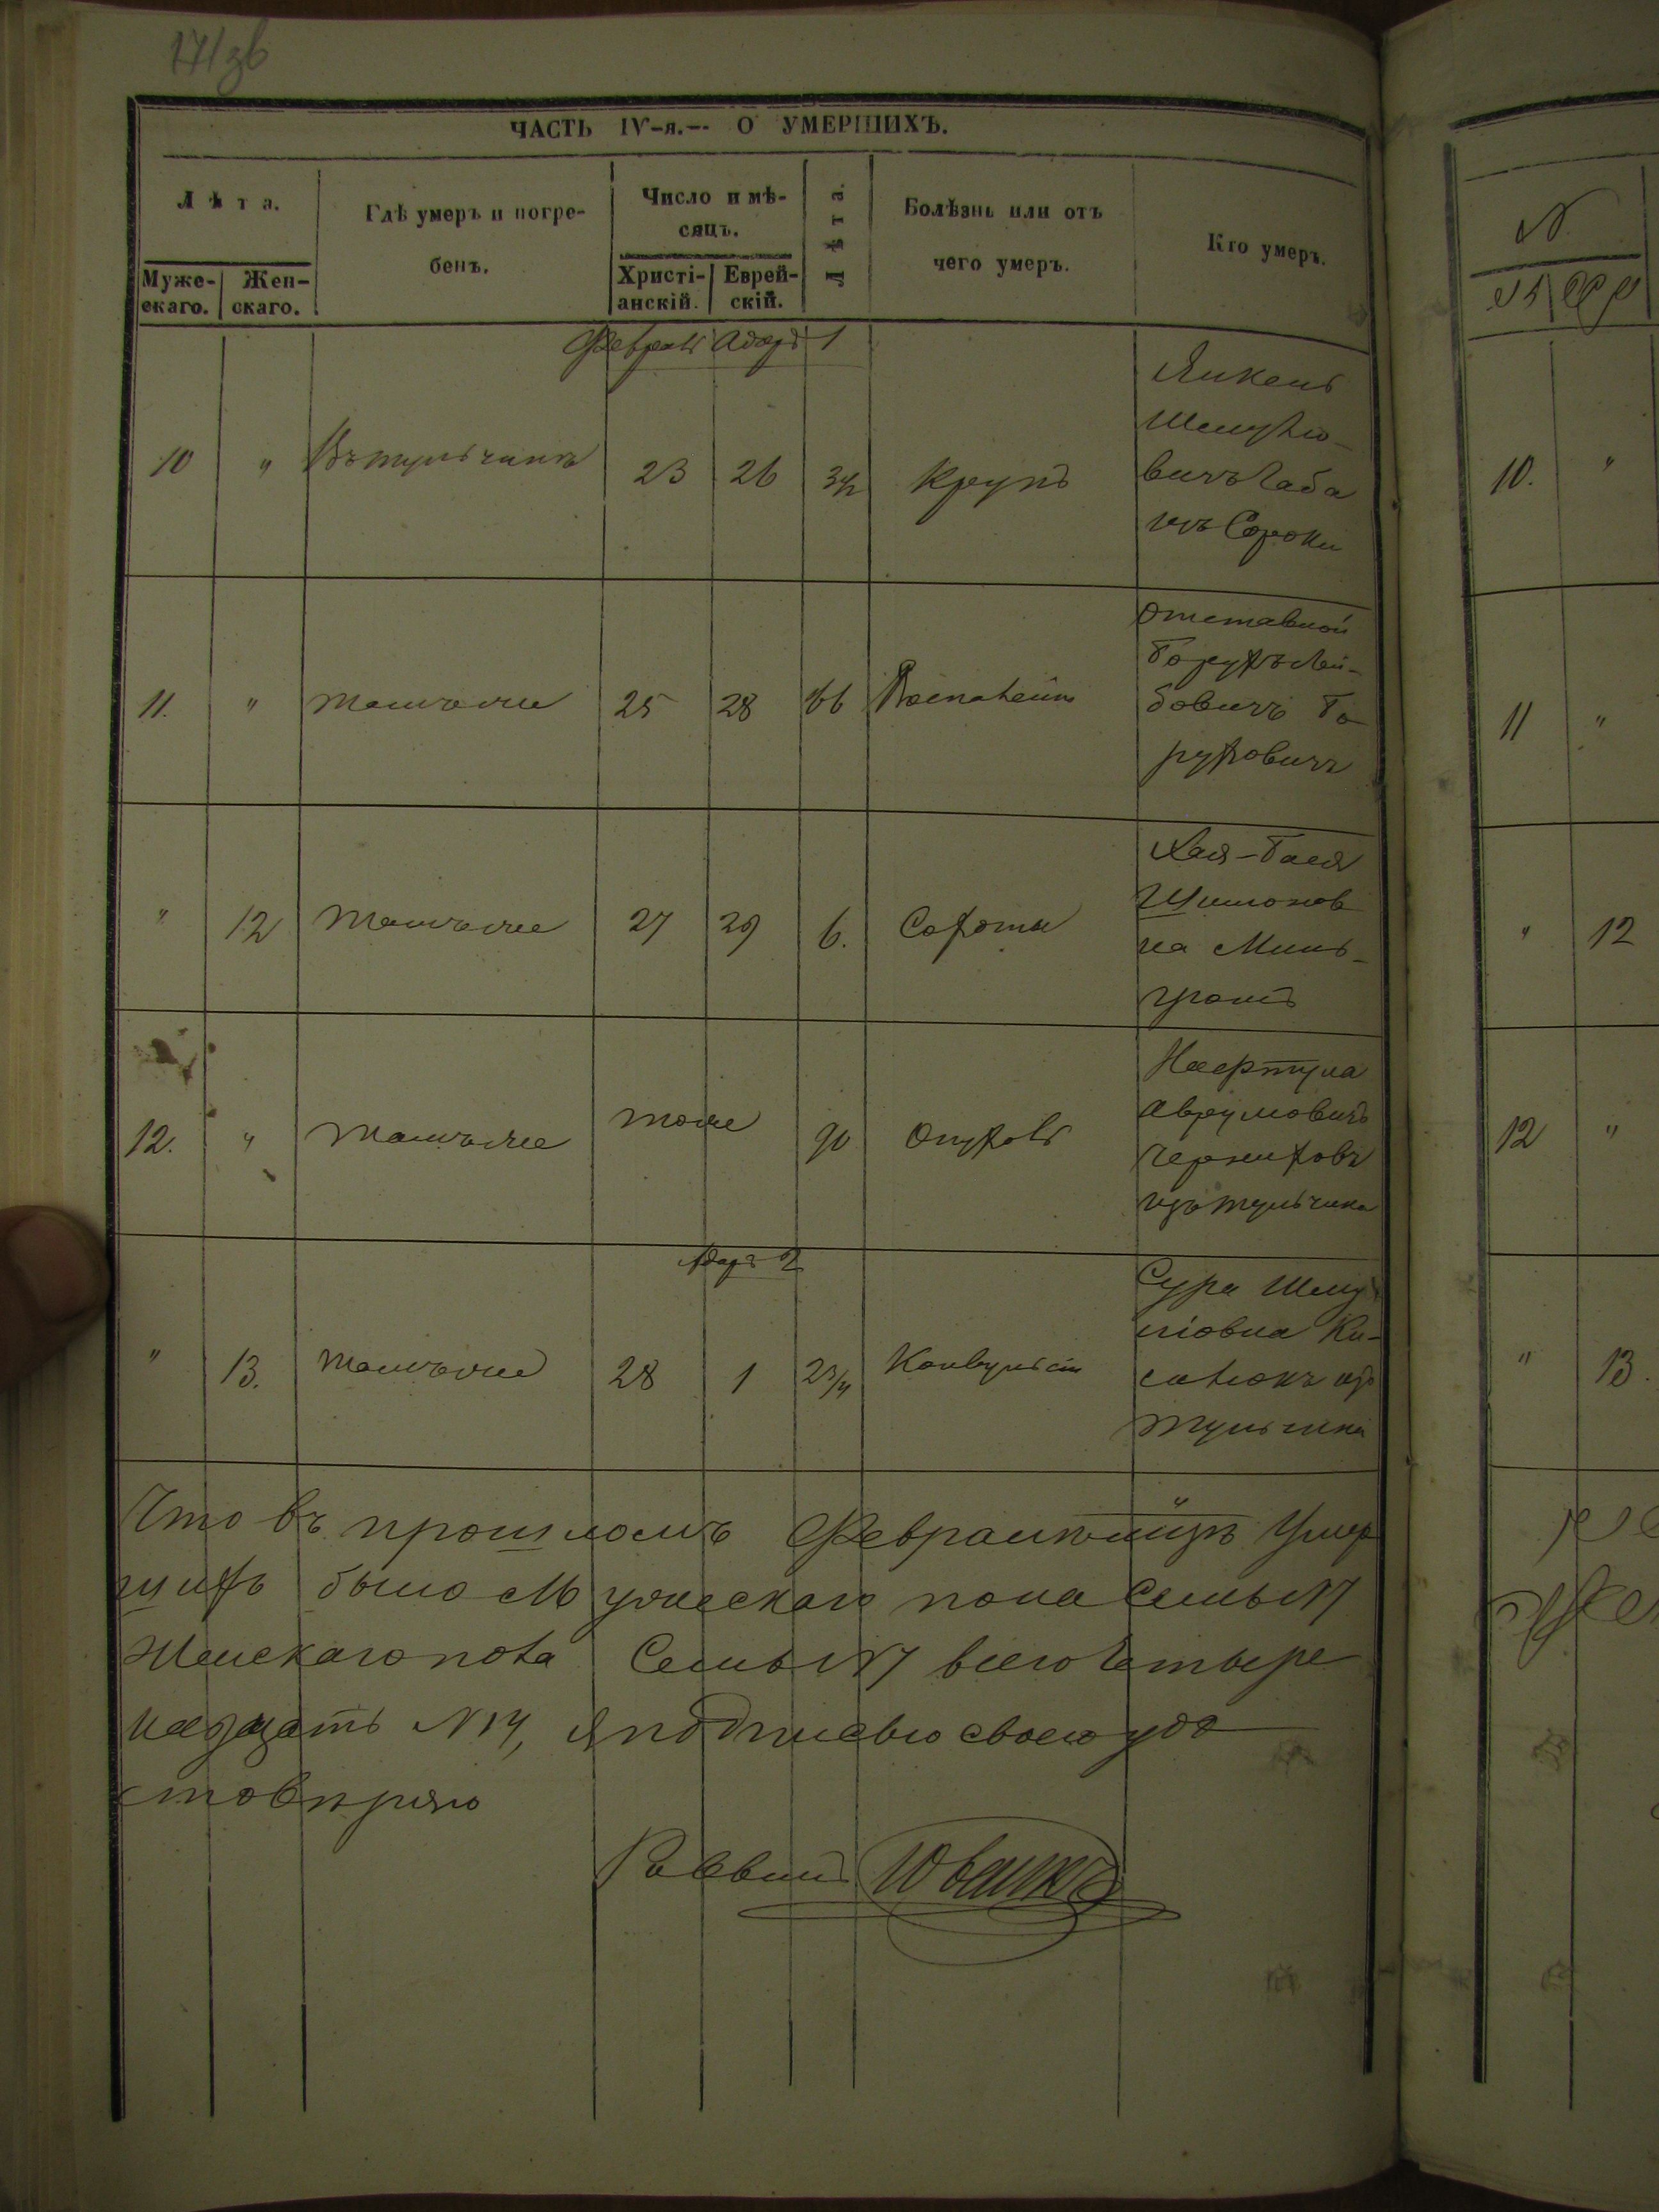 171зв
ЧАСТЬ IV-я.-- О УМЕРШИХЪ.
Лѣта.
Муже-скаго. Жен-скаго.
Гдѣ умеръ и погре-
бенъ.
Число и мѣ-
сяцъ.
Христі-анскій. Еврей-скій.
Лѣта.
Болѣзнь или отъ
чего умеръ.
Кто умеръ.
Февраль Адаръ 1
10 " Въ тульчинѣ 23 26 3½ Крупъ
Янкель
Шмулю-
вичъ Чаба
изъ Сороки
11. " тамъ же 25 28 66
Отставной
Борухъ Лей-
бовичъ Бо-
руховичъ
" 12 тамъ же 27 29 6. Сохоты
Хая-Бася
Шимонов
на Минь-
12. " тамъ же тоже 90 Опухоль
Нафтула
Аврумовичъ
Черниховъ
изъ тульчина
Адаръ 2
" 13. тамъ же 28 1 2¾ Конвульсіи
Сура Шму
ліовна Ки-
изъ
тульчина
Что въ прошломъ Февралѣ мцѣ Умер
шихъ было Мужескаго пола Семь N7
Женскаго пола Семь N7 всего Четыре
надцать N14, я подписью своею удо
стовѣряю
Раввинъ
N
10. "
11 "
" 12
12 "
" 13.